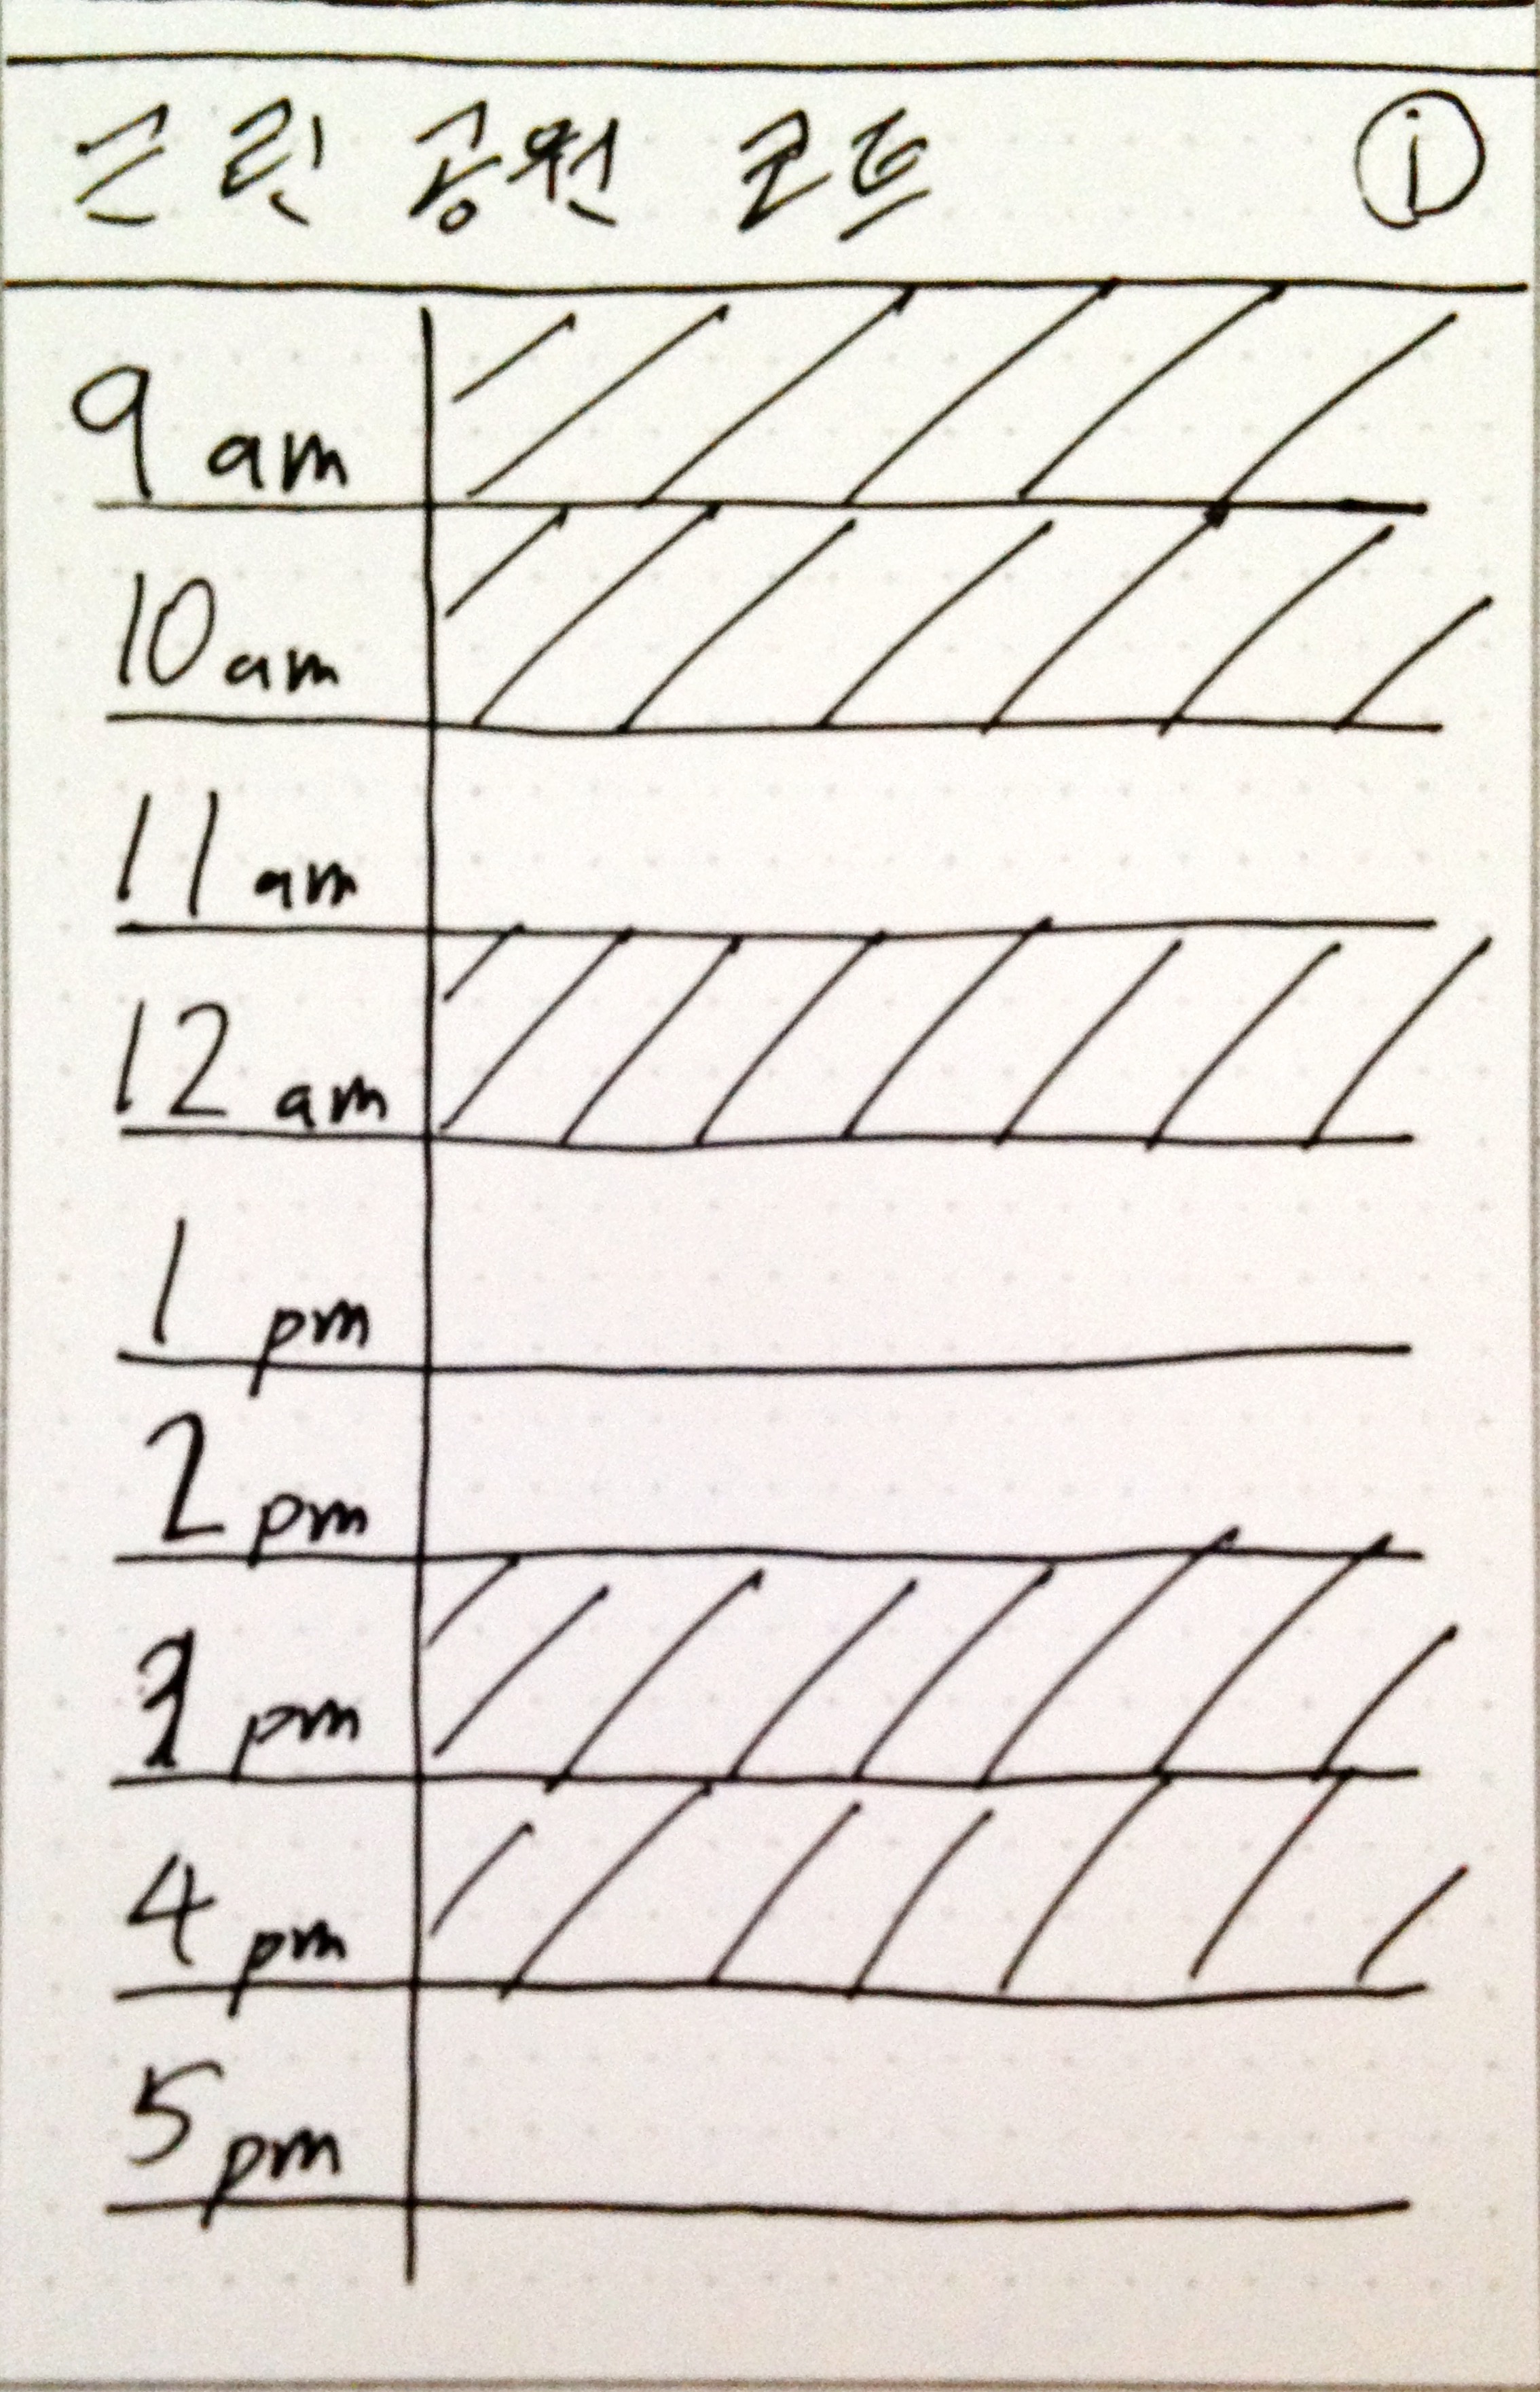 근린 공원 코트
i
9 am
10 am
11 am
12 am
1 pm
2 pm
3 pm
4 pm
5 pm